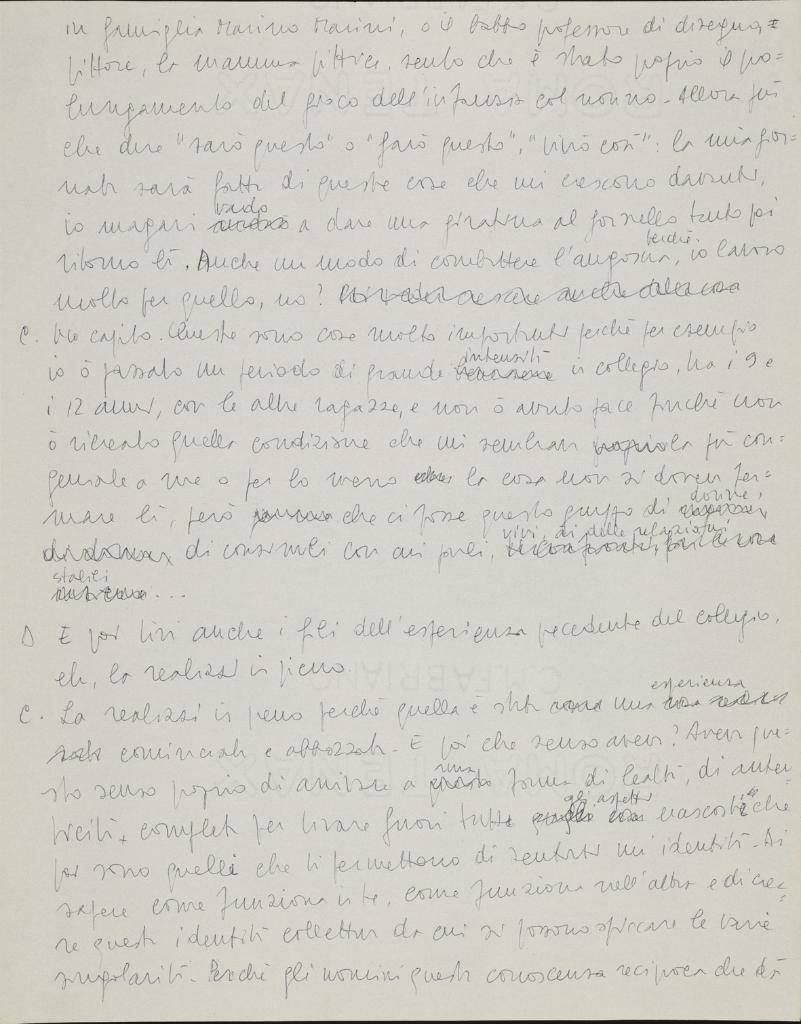 in famiglia Marino Marini, o il babbo professore di disegno, =
pittore, la mamma pittrice, sento che è stato proprio il pro=
lungamento del gioco dell'infanzia col nonno. Allora più
che dire "sarò questo" o "farò questo", "vivrò così": la mia gior=
nata sarà fatta di queste cose che mi crescono davanti,
vado
io magari a dare una giratina al fornello tanto poi
perché
ritorno lì. Anche un modo di combattere l'angoscia, io lavoro
molto per quello, no?
C. Ho capito. Queste sono cose molto importanti perché per esempio
intensità
io ò passato un periodo di grande in collegio, tra i 9 e
i 12 anni, con le altre ragazze, e non ò avuto pace finché non
ò ricreato quella condizione che mi sembrava la più con=
geniale a me o per lo meno la cosa non si doveva fer=
donne,
mare lì, però che ci fosse questo gruppo di
vivi, di delle relazioni
di consimili con cui parli,
stabili
...
D E poi tiri anche i fili dell'esperienza precedente del collegio,
eh, la realizzi in pieno.
esperienza
C. La realizzi in pieno perché quella è stata una
cominciata e abbozzata. E poi che senso aveva? Aveva que=
una
sto senso proprio di arrivare a forma di lealtà, di auten=
gli aspetti
ticità, completa per tirare fuori tutti nascosti che
poi sono quelli che ti permettono di sentirti un'identità. Di
sapere come funziona in te, come funziona nell'altra e di crea=
re questa identità collettiva da cui si possono spiccare le varie
singolarità. Perché gli uomini questa conoscenza reciproca che dà